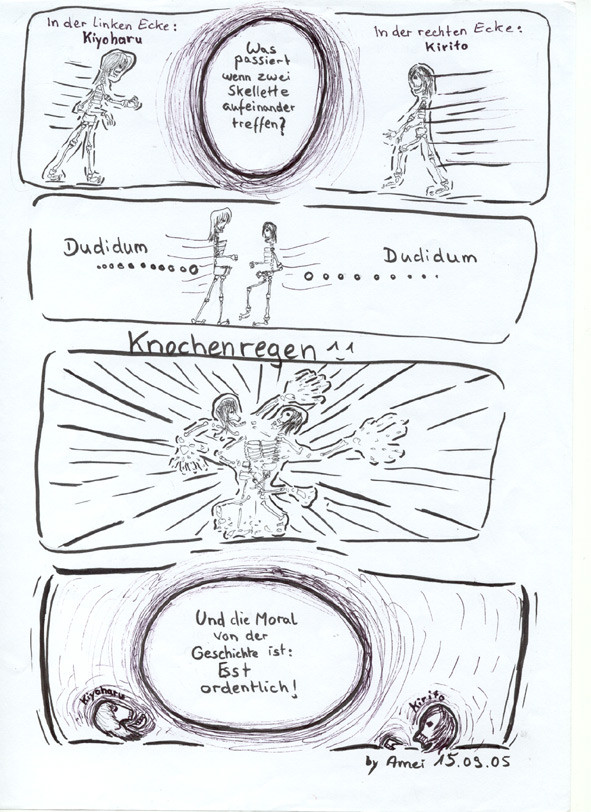 In der linken Ecke:
Kiyoharu
Was
passiert
wenn zwei
Skellette
aufeinander
treffen?
In der rechten Ecke:
Kirito
Dudidum
Dudidum
Knochenregen ^_^
Und die Moral
von der
Geschichte ist:
Esst
ordentlich!
Kiyoharu
Kirito
by Amei 15.09.05